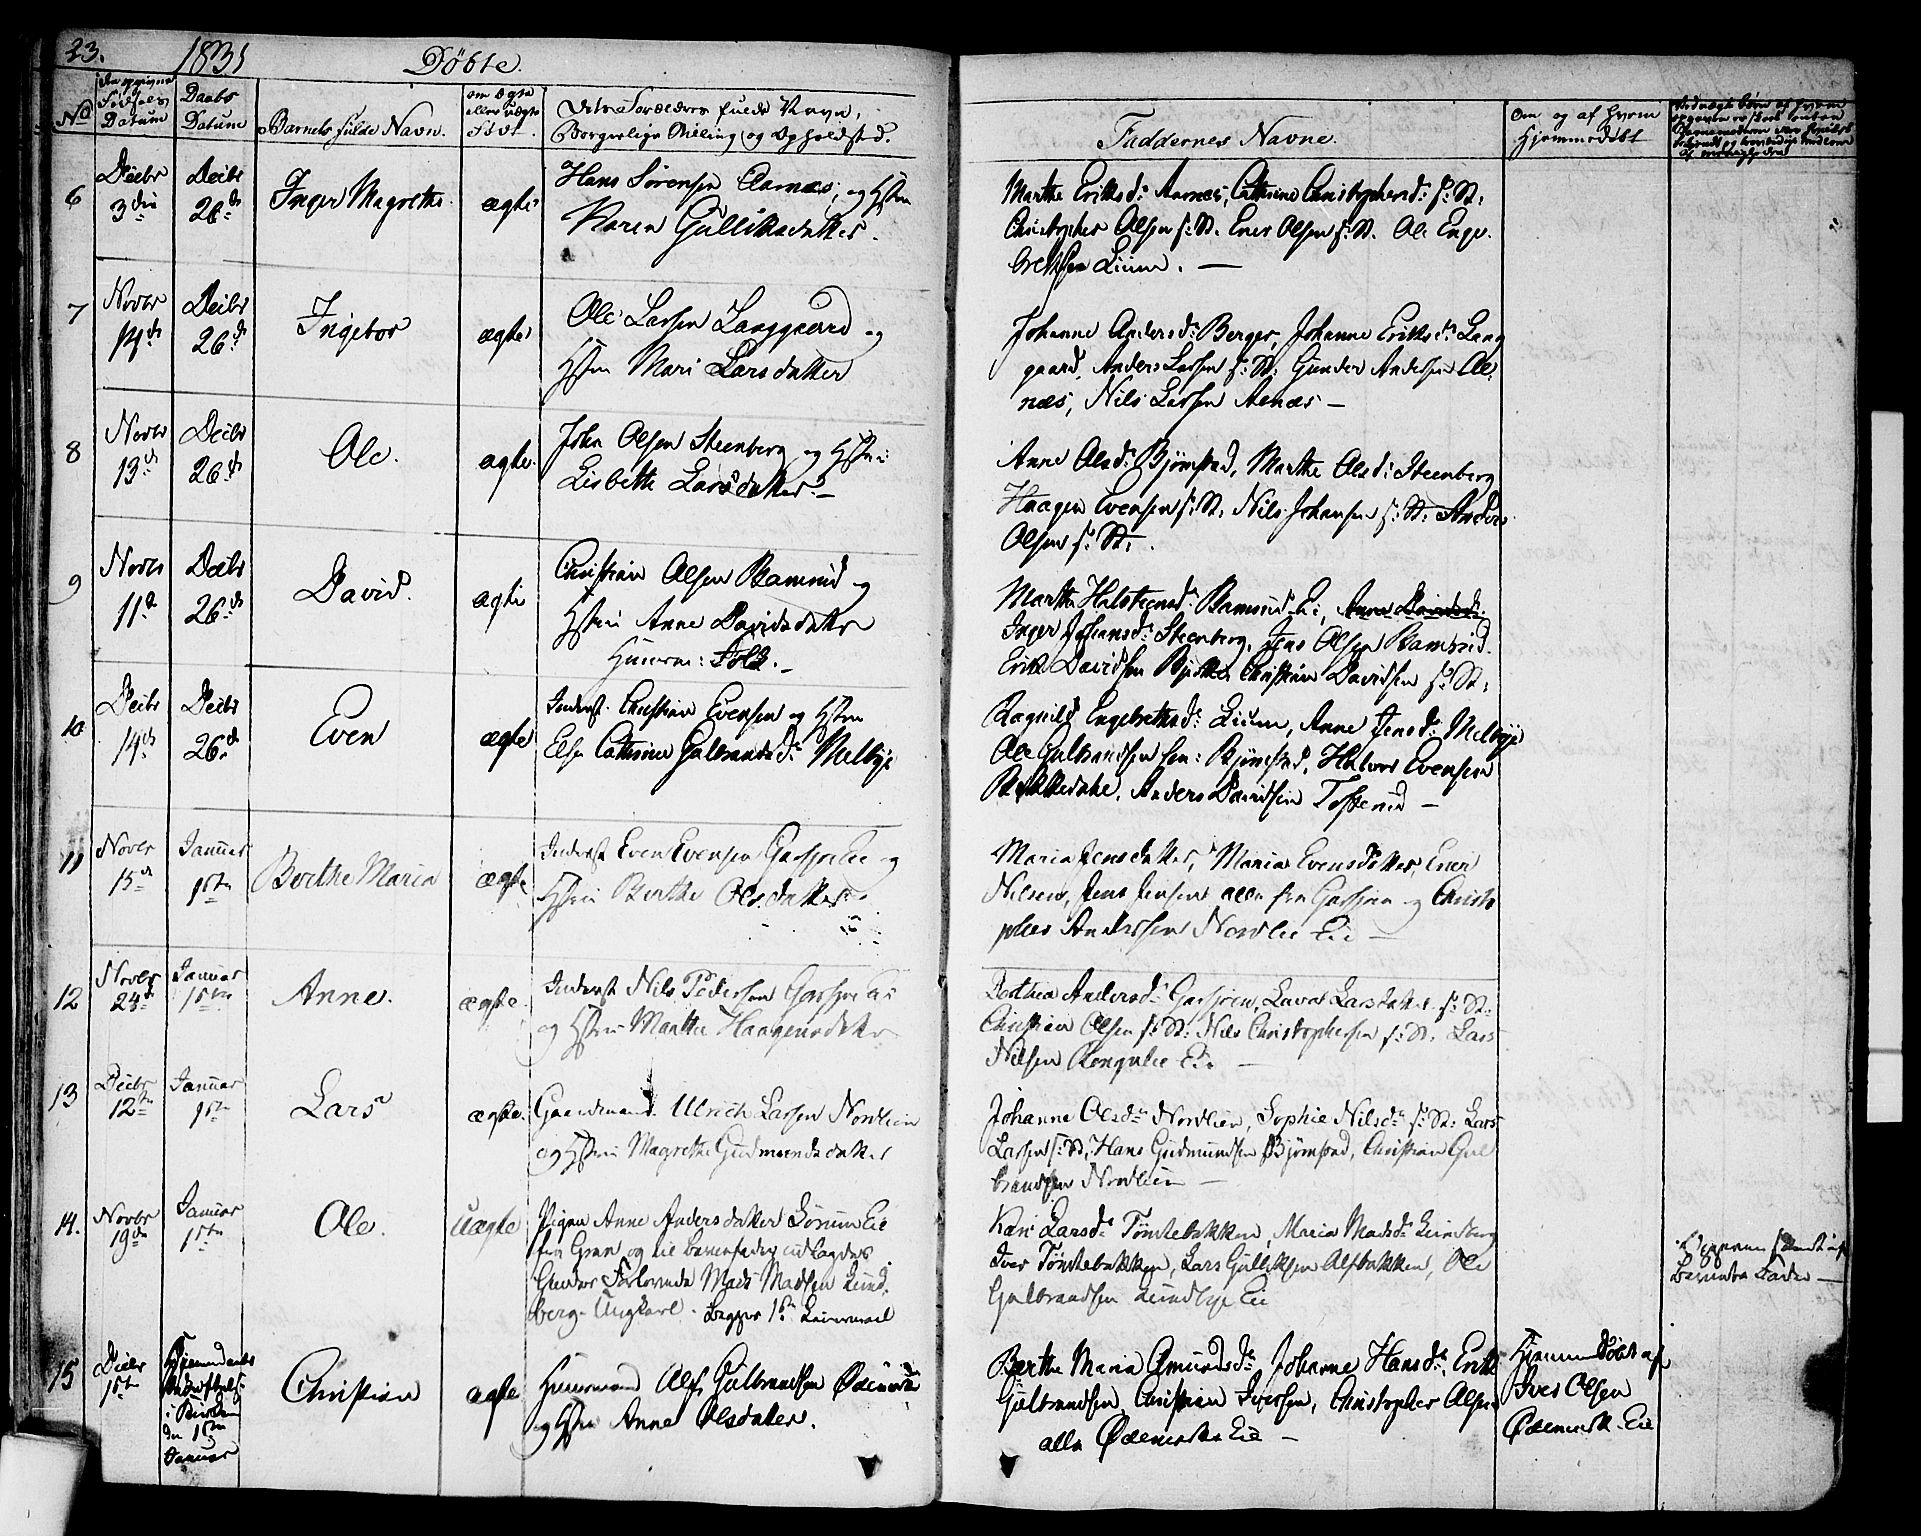 23. 1831 Døbte.
No
Den opgivne Fødsels Datum
Daabs Datum
Barnets fulde Navn.
om ægte eller uægte Født.
Borgerlige Stilling, og Opholdsted.
Faddernes Navne.
Om og af hvem Hjemmedøbt
6
Decbr 3die
Decbr 26de
Inger Magrethe.
ægte
Hans Sørensen Aarnæs, og Hstru
Karen Gulliksdatter.
Marthe Eriksd: Aarnæs, Cathrine Christophersd: s: St:
Christopher Olsen s: St. Ener Olsen s: St. Ole Enge-
bretsen Lium. —
7
Novbr 14de
Decbr 26de
Ingebor
ægte
Ole Larsen Langgaard og
Hstru Mari Larsdatter
Johanne Andersd: Berger, Johanne Eriksd: Lang
gaard, Anders Larsen s: St: Gunder Andersen Aar-
næs, Nils Larsen Arnæs —
8
Novbr 13de
Decbr 26de
Ole.
ægte.
John Olsen Steenberg og Hstru
Lisbeth Larsdatter. —
Anne Olsd: Bjørnstad, Marthe Olsd: Steenberg
Haagen Evensen s: St: Nils Johansen s: St: Anders
Olsen s: St: .
9
Novbr 11te
Decbr 26de
David.
ægte
Christian Olsen Ramsrud og
Hstru Anne Davidsdatter
Huusm: Folk. —
Marthe Halsteensd: Ramsrud Ei, Anne Davidsd:
Inger Johansd: Steenberg, Jens Olsen Ramsrud.
Erik Davidsen Christian Davidsen s: St:
10
Decbr 14de
Decbr 26de
Even
ægte
Inderst Christian Evensen og Hstru
Else Cathrine Gulbrandsd: Melbye
Ragnild Engebretsd: Lium, Anne Jensd: Melbye
Ole Gulbrandsen Bjørnstad, Halvor Evensen
Anders Davidsen Tosserud —
11
Novbr 15de
Januar 1ste
Berthe Maria
ægte
Inderst Even Evensen Gasjøe Ei og
Hstru Berthe Olsdatter.
Maria Jensdatter, Maria Evensdatter, Ener
Nilsen, Jens Jensen alle fra Gasjøen og Christo
pher Andersen Nordlie Eie —
12
Novbr 24de
Januar 1ste
Anne.
ægte.
Inderst Nils Pedersen Gasjøe Ei
og Hstru Marthe Haagensdatter
Dorthea Andersd: Gasjøen, Larsdatter s: St:
Christian Olsen s: St: Nils Christophersen s: St: Lars
Nilsen Ei. —
13
Decbr 12te
Januar 1ste
Lars
ægte.
Gaardmand Ulrich Larsen Nordlien
og Hstru Magrethe Gudmundsdatter
Johanne Olsd: Nordlien, Sophie Nilsd: s: St: Lars
Larsen s: St: Hans Gudmundsen Bjørnstad, Christian Gul
brandsen Nordlien —
14.
Novbr 19de
Januar 1ste
Ole.
Uægte
Pigen Anne Andersdatter Sørum Eie
fra Gran og til Barnefader udlagdes
Mads Madsen Lund-
berg. Ungkarl. Begges 1ste Leiermaal
Kari Larsd: Tømtebakken, Maria Madsd: Lundberg
Iver Tømtebakken, Lars Gulliksen Alfbakken, Ole
Gulbrandsen Lundbye Eie
Barnets Fader —
15
Decbr 1ste
Hjemmedaab
i Kirken
den 1ste
Januar
Christian
ægte
Huusmand Alf Gulbrandsen Ødemark
og Hstru Anne Olsdatter.
Berthe Maria Amundsd: Johanne Hansd: Erik
Gulbrandsen, Christian Iversen, Christopher Olsen
alle Ødemarks Eie —
Hjemmedøbt af
Iver Olsen
Ødemark-Eie